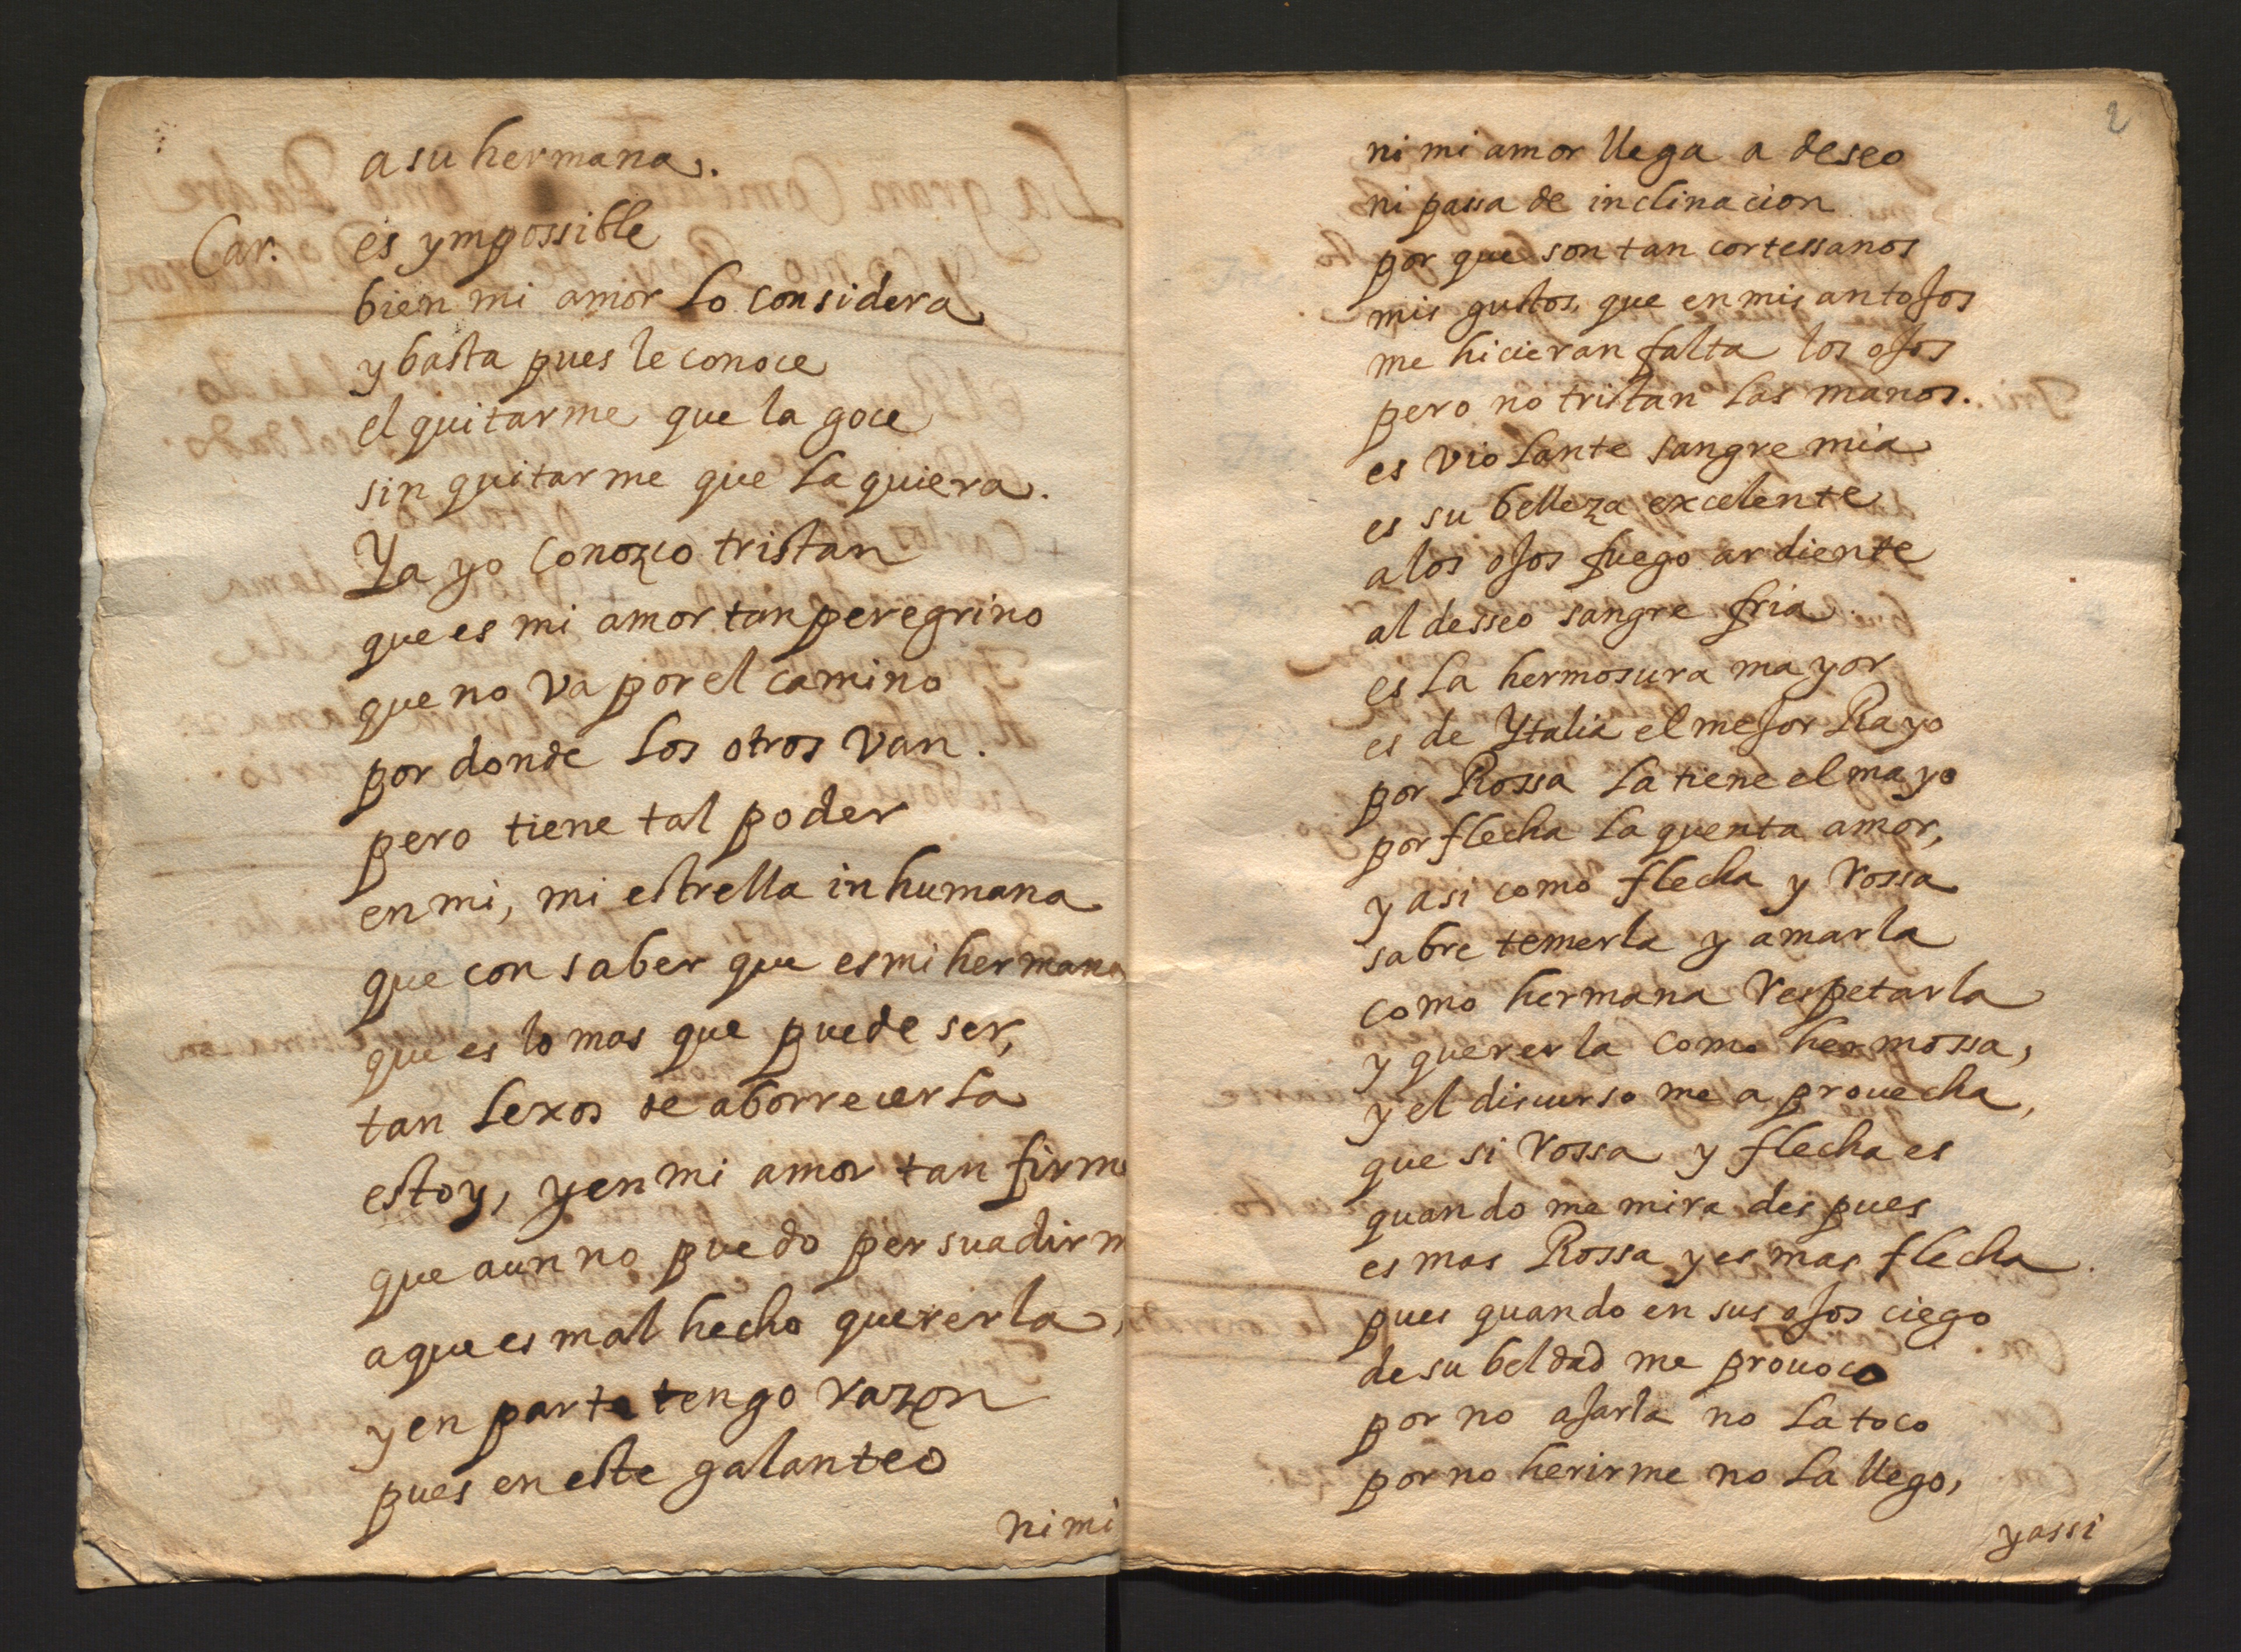 a su hermana.
Car. es ympossible
bien mi amor lo considera
y basta pues le conoce
el quitarme que la goce
sin quitarme que la quiera.
Ya yo conozco tristan
que es mi amor tan peregrino
que no va por el camino
por donde los otros van.
pero tiene tal poder
en mi, mi estrella inhumana
que con saber que es mi hermana
que es lo mas que puede ser,
tan lexos de aborrecerla
estoy, y en mi amor tan firme
que aun no puedo persuadirm
a que es mal hecho quererla,
y en parte tengo razon
pues en este galanteo
ni mi
2
ni mi amor llega a deseo
ni passa de inclinacion
por que son tan cortessanos
mis gustos, que en mis antojos
me hicieran falta los ojos
pero no tristan las manos.
es violante sangre mia
es su belleza excelente
a los ojos fuego ardiente
al desseo sangre fria
es la hermosura mayor
es de Ytalia el mejor Rayo
por Rossa la tiene el mayo
por flecha la quenta amor,
y asi como flecha y rossa
sabre temerla y amarla
como hermana respetarla
y quererla como hermossa,
y el discurso me aprouecha,
que si rossa y flecha es
quando me mira despues
es mas Rossa y es mas flecha.
pues quando en sus ojos ciego
de su beldad me prouoco
por no ajarla no la toco
por no herirme no la llego,
y assi